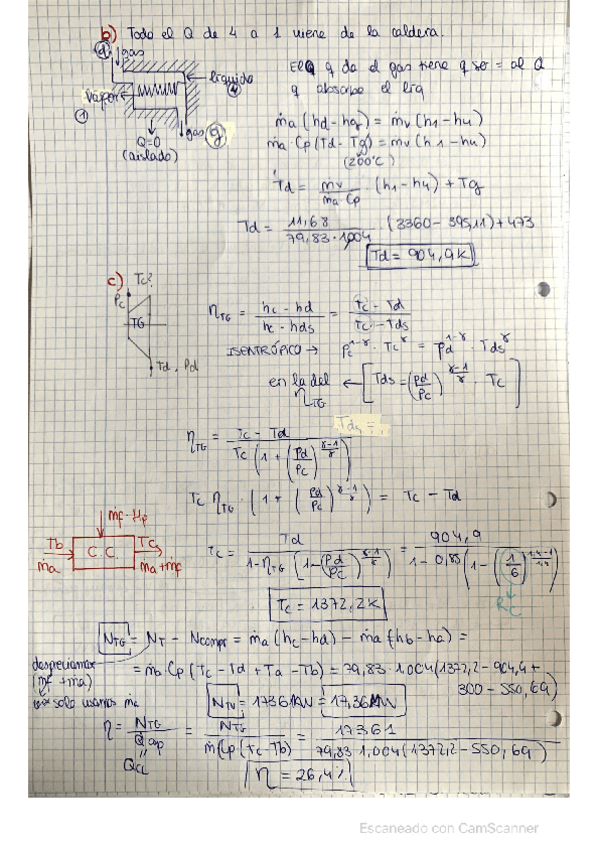 b) Todo el Q de 4 a 1 viene de la caldera.
d
gas
líquido
4
vapor
1
gas g
Q=0
(aislado)
El Q q da el gas tiene q ser = al Q
q absorbe el liq
ṁa (hd-hg) = ṁv (h1-h4)
ṁa · Cp (Td-Tg) = ṁv (h1-h4)
(200°C)
Td = mv/ma Cp · (h1-h4) + Tg
Td = 11,68/79,83·1,004 · (3360-395,11)+473
Td = 904,9K
c) Tc?
Pc
TG
Td, Pd
ηTG = hc-hd/hc-hds = Tc-Td/Tc-Tds
ISENTRÓPICO → Pc^1-γ · Tc^γ = Pd^1-γ · Tds^γ
en la del ← [Tds = (Pd/Pc)^γ-1/γ · Tc]
ηTG
Tds =
ηTG = Tc-Td/Tc (1+(Pd/Pc)^γ-1/γ)
Tc ηTG · (1+(Pd/Pc)^γ-1/γ) = Tc-Td
ṁf·Hp
Tb
ṁa
C.C.
Tc
ṁa+ṁf
Tc = Td/1-ηTG (1-(Pd/Pc)^γ-1/γ) = 904,9/1-0,85 (1-(1/6)^1,4-1/1,4)
Rc
Tc = 1372,2K
NTG = NT - Ncompr = ṁa (hc-hd) - ṁa (hb-ha) =
despreciamos
(ṁf+ma)
solo usamos ṁa
= ṁa Cp (Tc-Td+Ta-Tb) = 79,83·1,004 (1372,2-904,9+
300-550,69)
= 17361KW = 17,36MW
η = NTG/Q̇ap = NTG/ṁCp (Tc-Tb) = 17361/79,83·1,004 (1372,2-550,69)
QCL
η = 26,4%
Escaneado con CamScanner